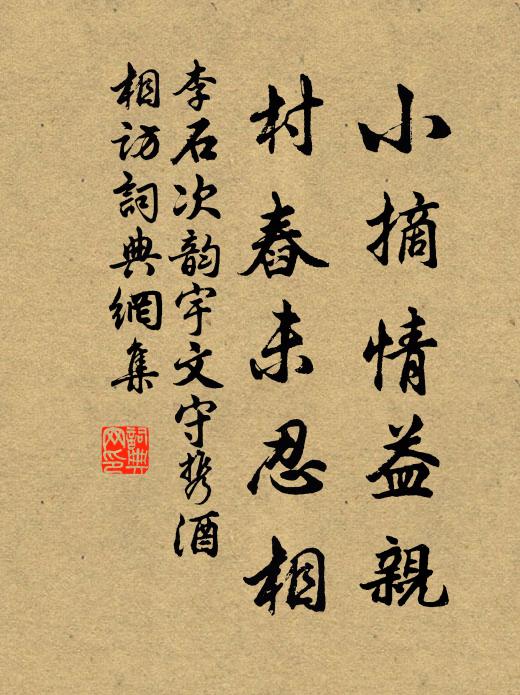 小摘情益親
村舂未忍相
李石次韵宇文守攜酒
相訪詞典網集
詞典
网印